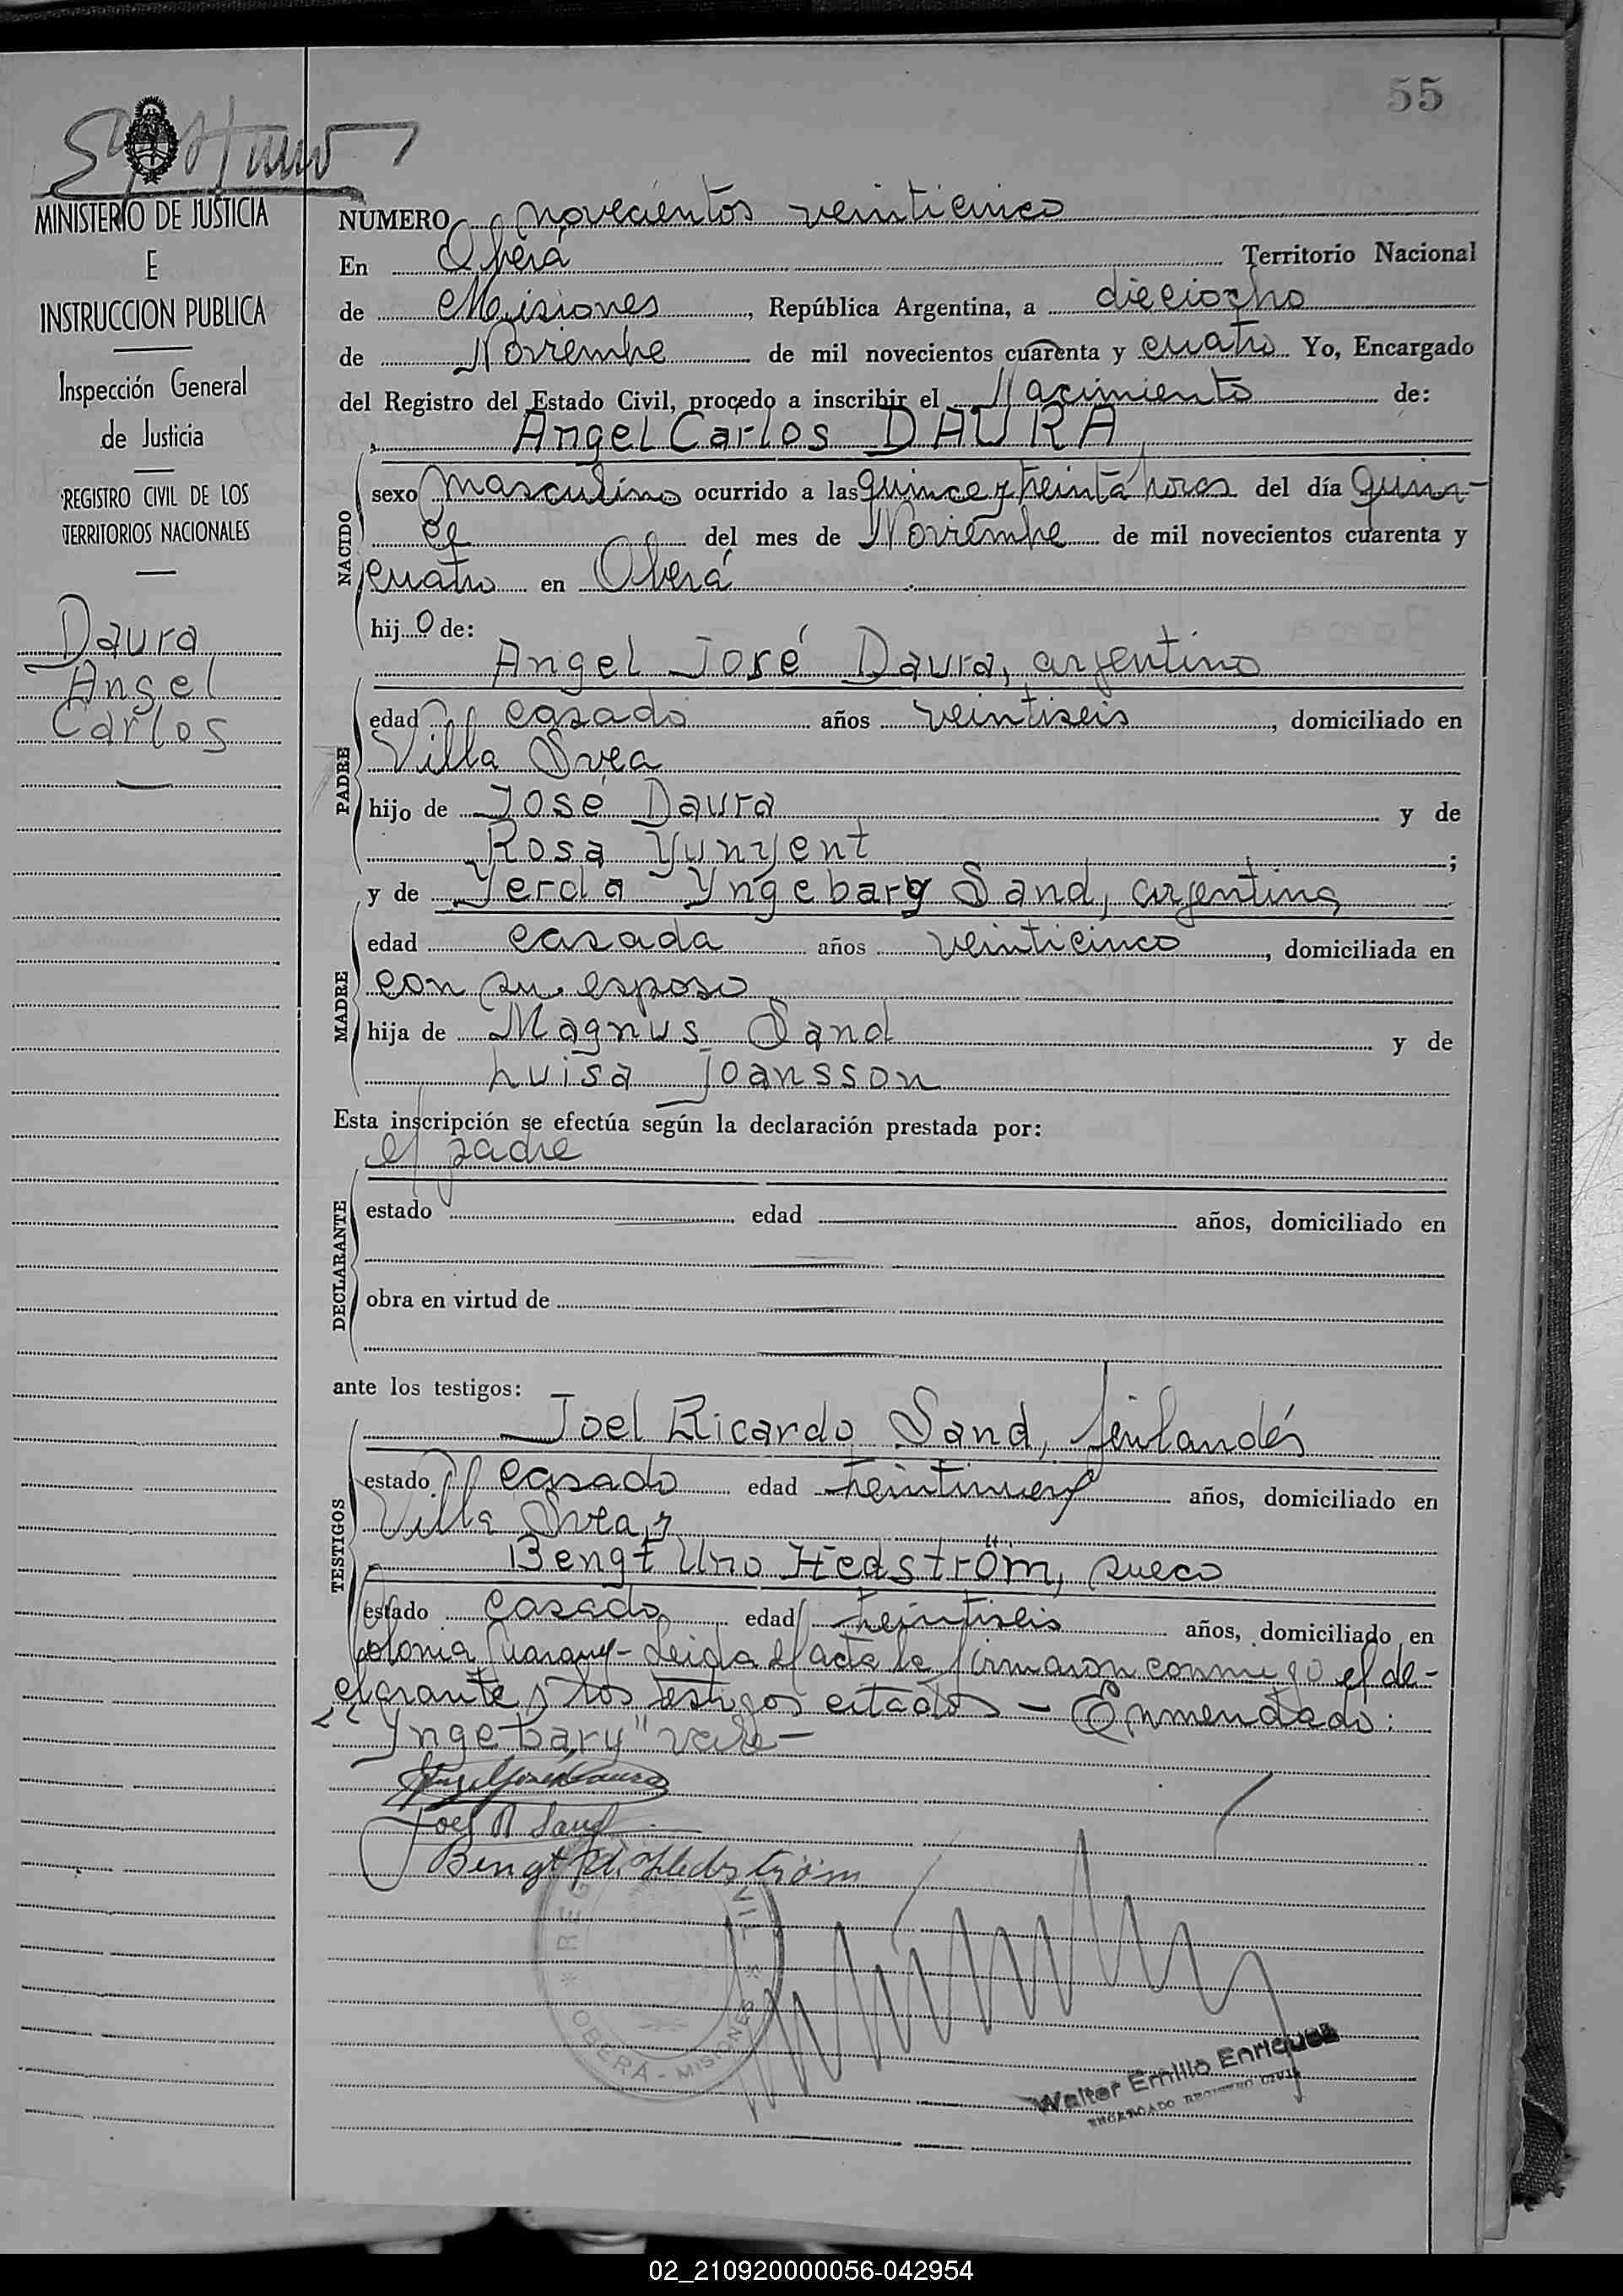 55
MINISTERIO DE JUSTICIA
E
INSTRUCCION PUBLICA
Inspección General
de Justicia
REGISTRO CIVIL DE LOS
TERRITORIOS NACIONALES
Daura
Angel
Carlos
NUMERO novecientos veinticinco
En Oberá Territorio Nacional
de Misiones, República Argentina, a dieciocho
de Noviembre de mil novecientos cuarenta y cuatro Yo, Encargado
del Registro del Estado Civil, procedo a inscribir el Nacimiento de:
Angel Carlos DAURA
NACIDO
sexo masculino ocurrido a las quince y treinta horas del día quin-
ce del mes de Noviembre de mil novecientos cuarenta y
cuatro en Oberá
hijo de:
Angel José Daura, argentino
PADRE
edad casado años veintiseis, domiciliado en
Villa Svea
hijo de José Daura y de
Rosa Yunyent;
y de Yerda Yngebarg Sand, argentina
MADRE
edad casada años veinticinco, domiciliada en
con su esposo
hija de Magnus Sand y de
Luisa Joansson
Esta inscripción se efectúa según la declaración prestada por:
el padre
DECLARANTE
estado edad años, domiciliado en
obra en virtud de
ante los testigos:
TESTIGOS
Joel Ricardo Sand, finlandés
estado casado edad treintinueve años, domiciliado en
Villa Svea, y
Bengt Uno Hedström, sueco
estado casado edad treintiseis años, domiciliado en
Colonia Guarany - Leida el acta la firmaron conmigo el de-
clarante y los testigos citados - Enmendado:
"Yngebarg" vale -
Joel R Sand
Bengt U. Hedström
REG CIVIL
OBERÁ - MISIONES
Walter Emilio Enriquez
ENCARGADO REGISTRO CIVIL
02_210920000056-042954